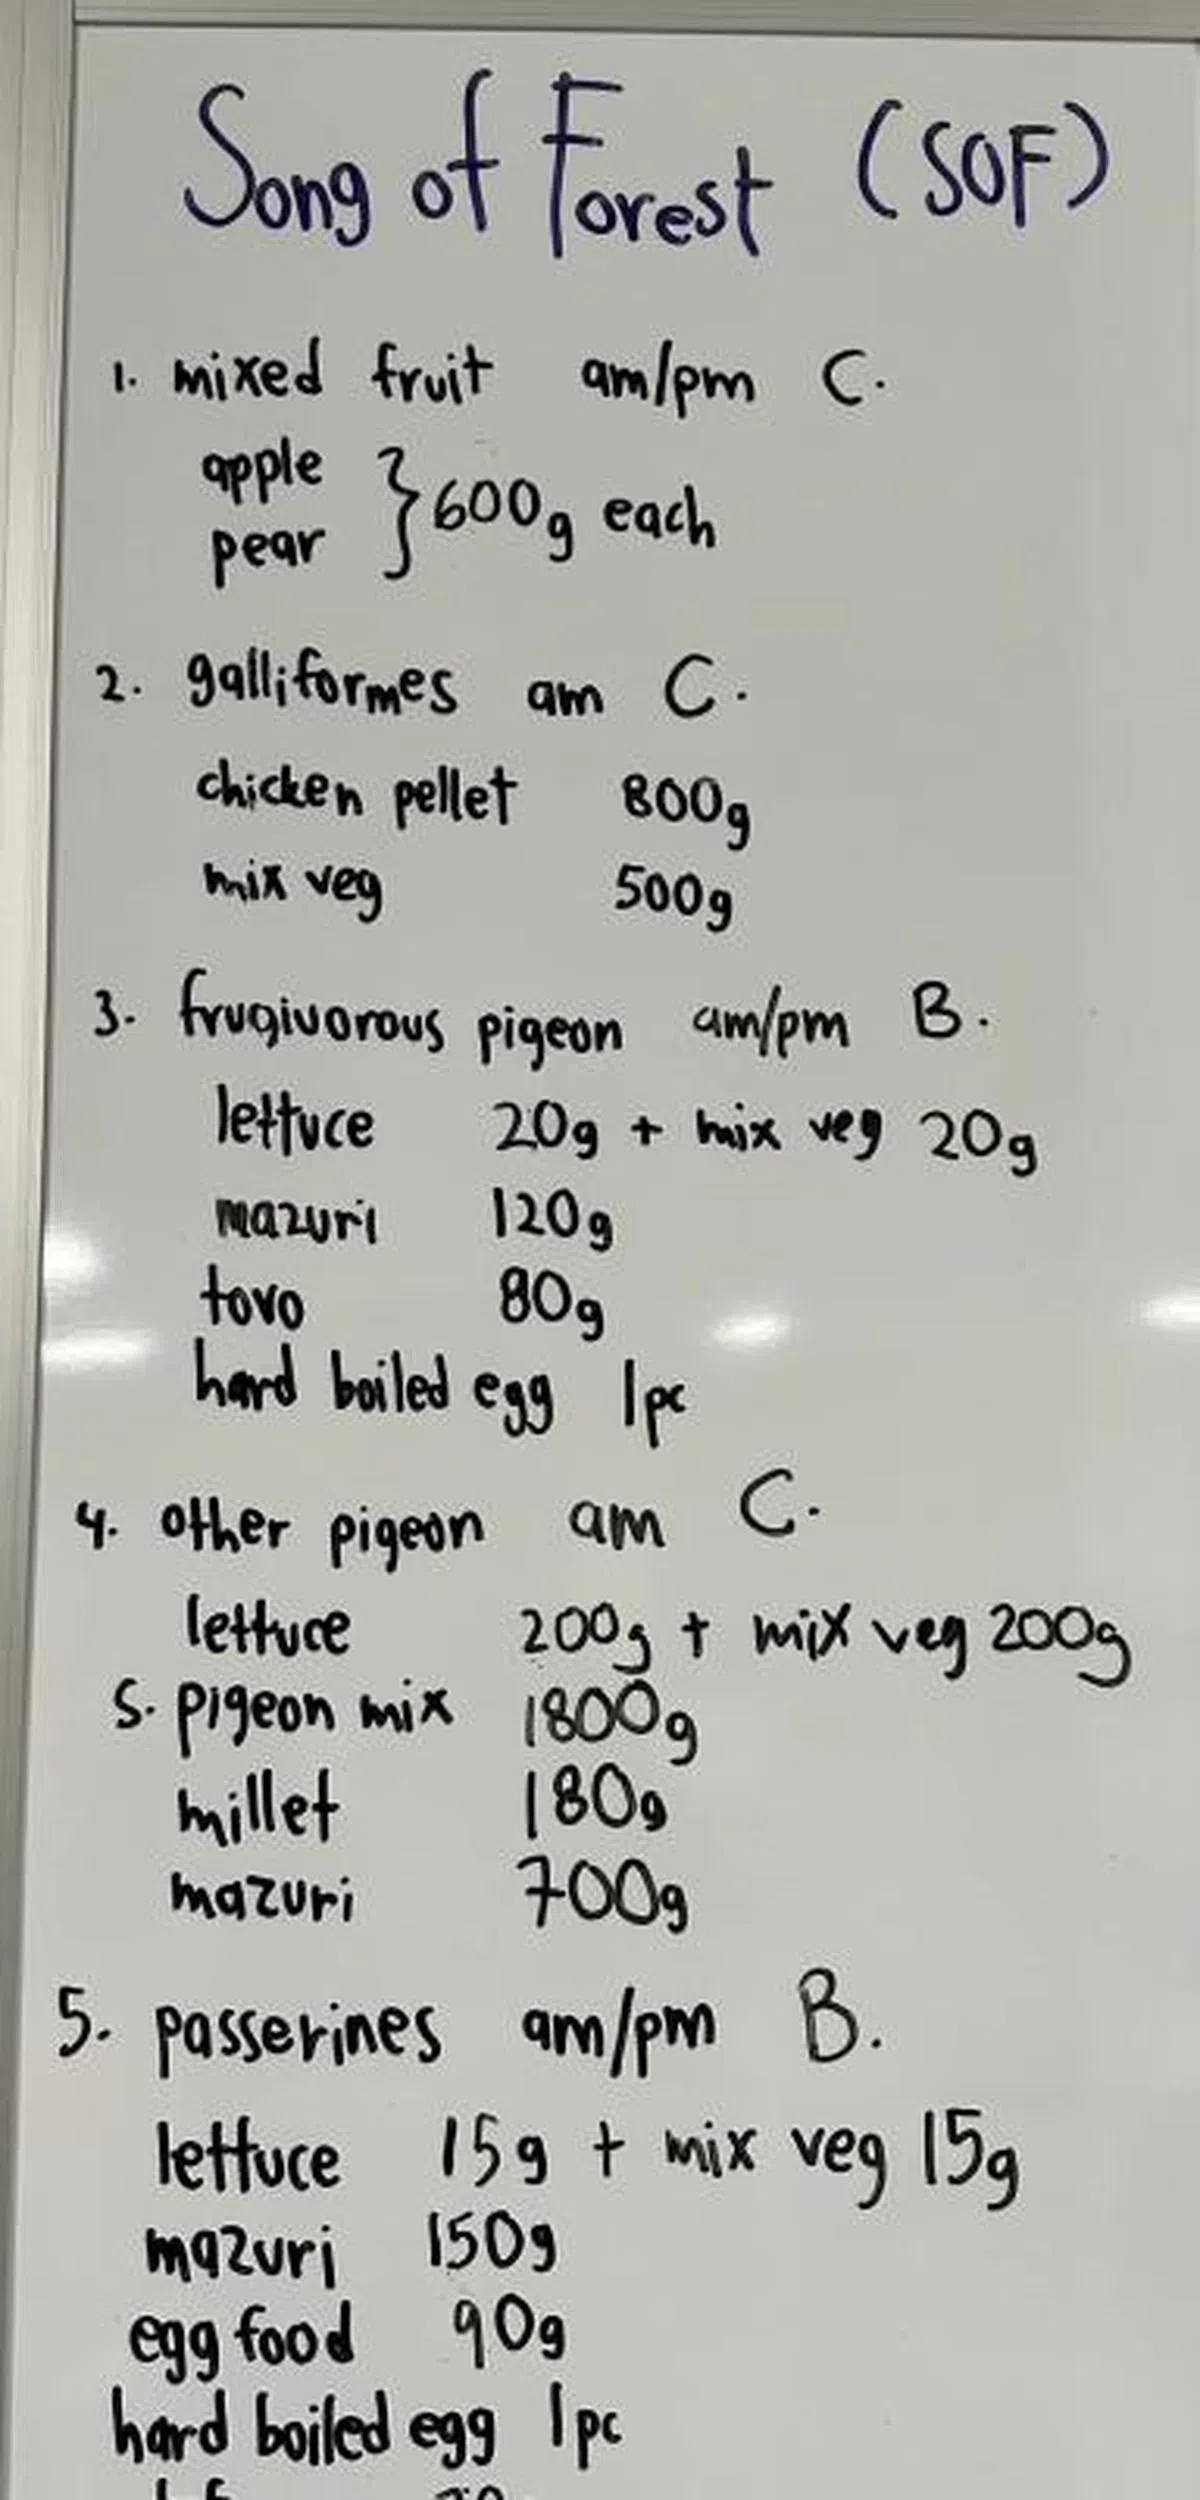 Song of Forest (SOF)
1. mixed fruit am/pm C.
apple
pear } 600g each
2. galliformes am C.
chicken pellet 800g
mix veg 500g
3. frugivorous pigeon am/pm B.
lettuce 20g + mix veg 20g
mazuri 120g
tovo 80g
hard boiled egg 1pc
4. other pigeon am C.
lettuce 200g + mix veg 200g
5. pigeon mix 1800g
millet 180g
mazuri 700g
5. passerines am/pm B.
lettuce 15g + mix veg 15g
mazuri 150g
egg food 90g
hard boiled egg 1pc